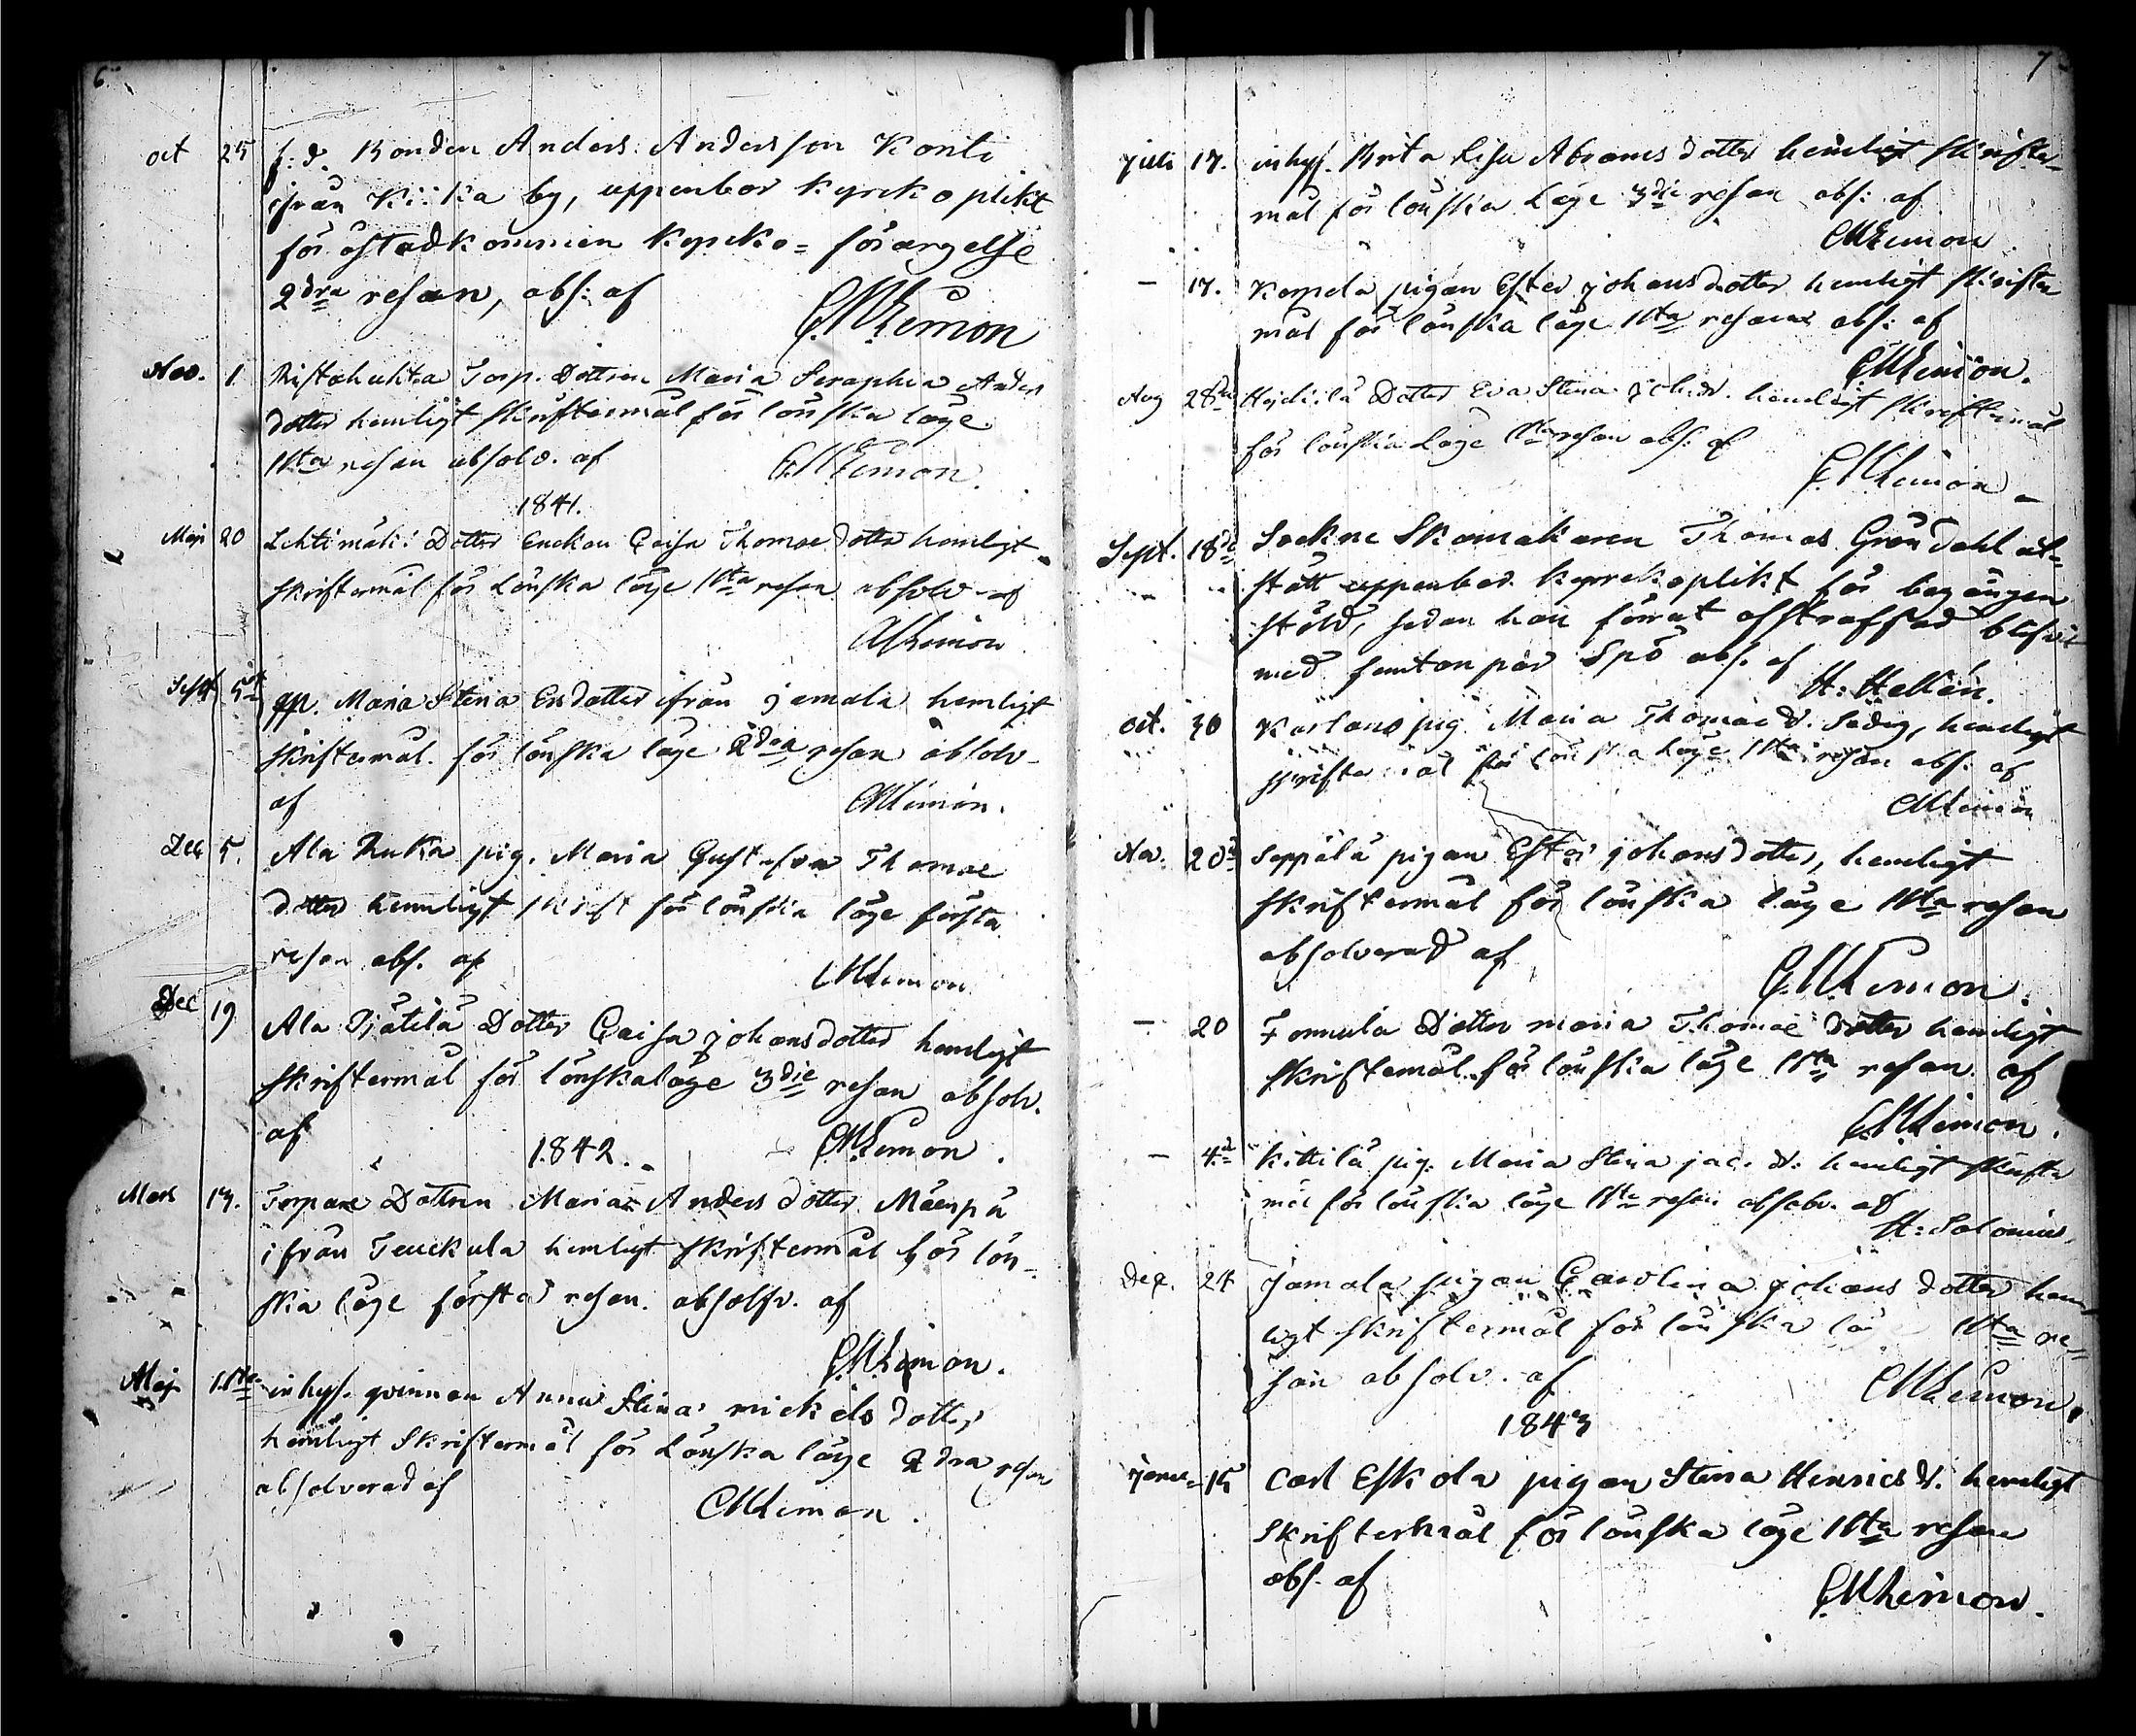 6.
oct 25 f: d. Bonden Anders Andersson Konti
ifrån Kiika by, uppenbar kyrkoplikt
för åstadkommen kyrko=förargelse
2dra resan, abs: af
CMLimon
Nov. 1 Ristahuhta Torp. Dottren Maria Seraphia Anders
dotter hemligt skriftermål för lönska läge
1sta resan absolv. af CMLimon.
1841.
Maji 20 Lehtimäki Dotter Enckan Caisa Thomae dotter hemligt
skriftermål för Lönska läge 1sta resan absolv af
CMLimon
Sept 5 Maria Stina Ersdotter ifrån jamala hemligt
skriftermål för lönska läge 2dra resan absolv
af CMLimon.
Dec 5. Ala Ruka pig. Maria Gustafva Thomae
dotter hemligt skrift för lönska läge första
resan abs. af CMLimon
Dec 19 Ala Pjätilä Dotter Caisa johansdotter hemligt
skriftermål för lönskaläge 3die resan absolv.
af CMLimon.
1842.
Mars 13. Torpare Dottren Maria Andersdotter Mäenpä
ifrån Teuckula hemligt skriftermål för lön-
ska läge första resan. absolv. af
CMLimon.
Maj 1sta inhys. qvinnan Anna Stina mickelsdotter
hemligt Skriftermål för Lönska läge 2dra resan
absolverad af
CMLimon.
7
juli 17. inhys. Brita Lisa Abramsdotter hemligt skrifter-
mål för lönska Läge 3die resan abs: af
CMLimon
— 17. pigan Ester johansdotter hemligt skrifter
mål för lönska läge 1sta resan abs: af
CMLimon.
Aug 28 Dotter Eva Stina joh.d. hemligt skriftermål
för lönska Läge 1sta resan abs. af
CMLimon
Sept. 18 Sockne Skomakaren Thomas Gröndahl ut-
stått uppenbar kyrrkoplikt för begången
stöld, sedan han förrut afstraffad blifvit
med femton par Spö abs. af
H: Hellén.
oct. 30 pig Maria Thomae d. hemligt
skriftermål för Lönska läge 1sta resan abs. af
CMLimon
Nov. 20 Seppälä pigan Ester johansdotter, hemligt
skriftermål för lönska läge 1sta resan
absolverad af
CMLimon.
— 20 Fonnula Dotter maria Thomae dotter hemligt
skriftemål för lönska läge 1sta resan af
CMLimon.
— 4 Kittilä pig. Maria Stina jac. d: hemligt skrifter
mål för lönska läge 1sta resan absolv. af
H: Salonius.
Dec. 24 Jamala pigan Carolina johansdotter hem
ligt skriftermål för lönska lä 1sta re=
san absolv. af CMLimon.
1843
Janu= 15 Carl Eskola pigan Stina Henricsd. hemligt
skriftermål för lönska läge 1sta resan
abs. af
CMLimon.